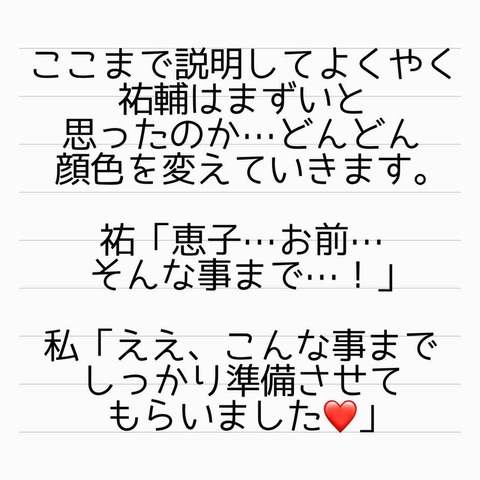 ここまで説明してよくやく
祐輔はまずいと
思ったのか…どんどん
顔色を変えていきます。
祐「恵子…お前…
そんな事まで…！」
私「ええ、こんな事まで
しっかり準備させて
もらいました❤️」